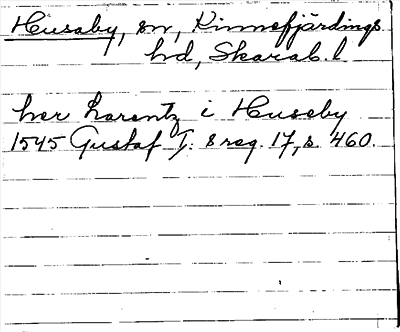 Husaby, sn, Kinnefjärdings
hd, Skarab. l.
her Larentz i Huseby
1545 Gustaf I: s reg. 17, s. 460.